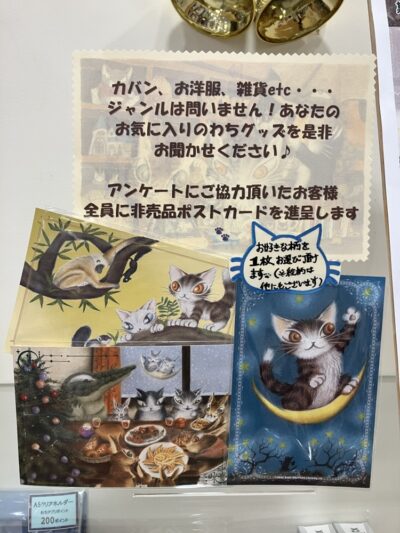 カバン、お洋服、雑貨etc・・・
ジャンルは問いません！あなたの
お気に入りのわちグッズを是非
お聞かせください♪
アンケートにご協力頂いたお客様
全員に非売品ポストカードを進呈します
お好きな柄を
1枚、お選び頂け
ます。(※絵柄は
他にもございます)
A5クリアホルダー
200ポイント